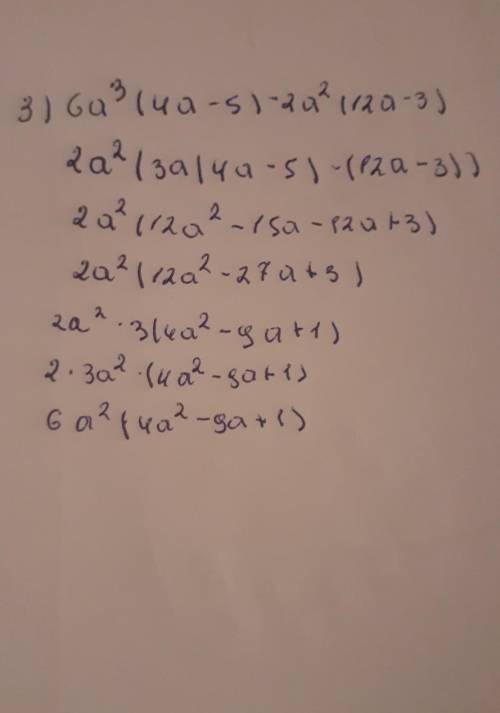 3) 6a³(4a-5)-2a²(12a-3)
2a²(3a(4a-5)-(12a-3))
2a²(12a²-15a-12a+3)
2a²(12a²-27a+3)
2a²·3(4a²-9a+1)
2·3a²·(4a²-9a+1)
6a²(4a²-9a+1)